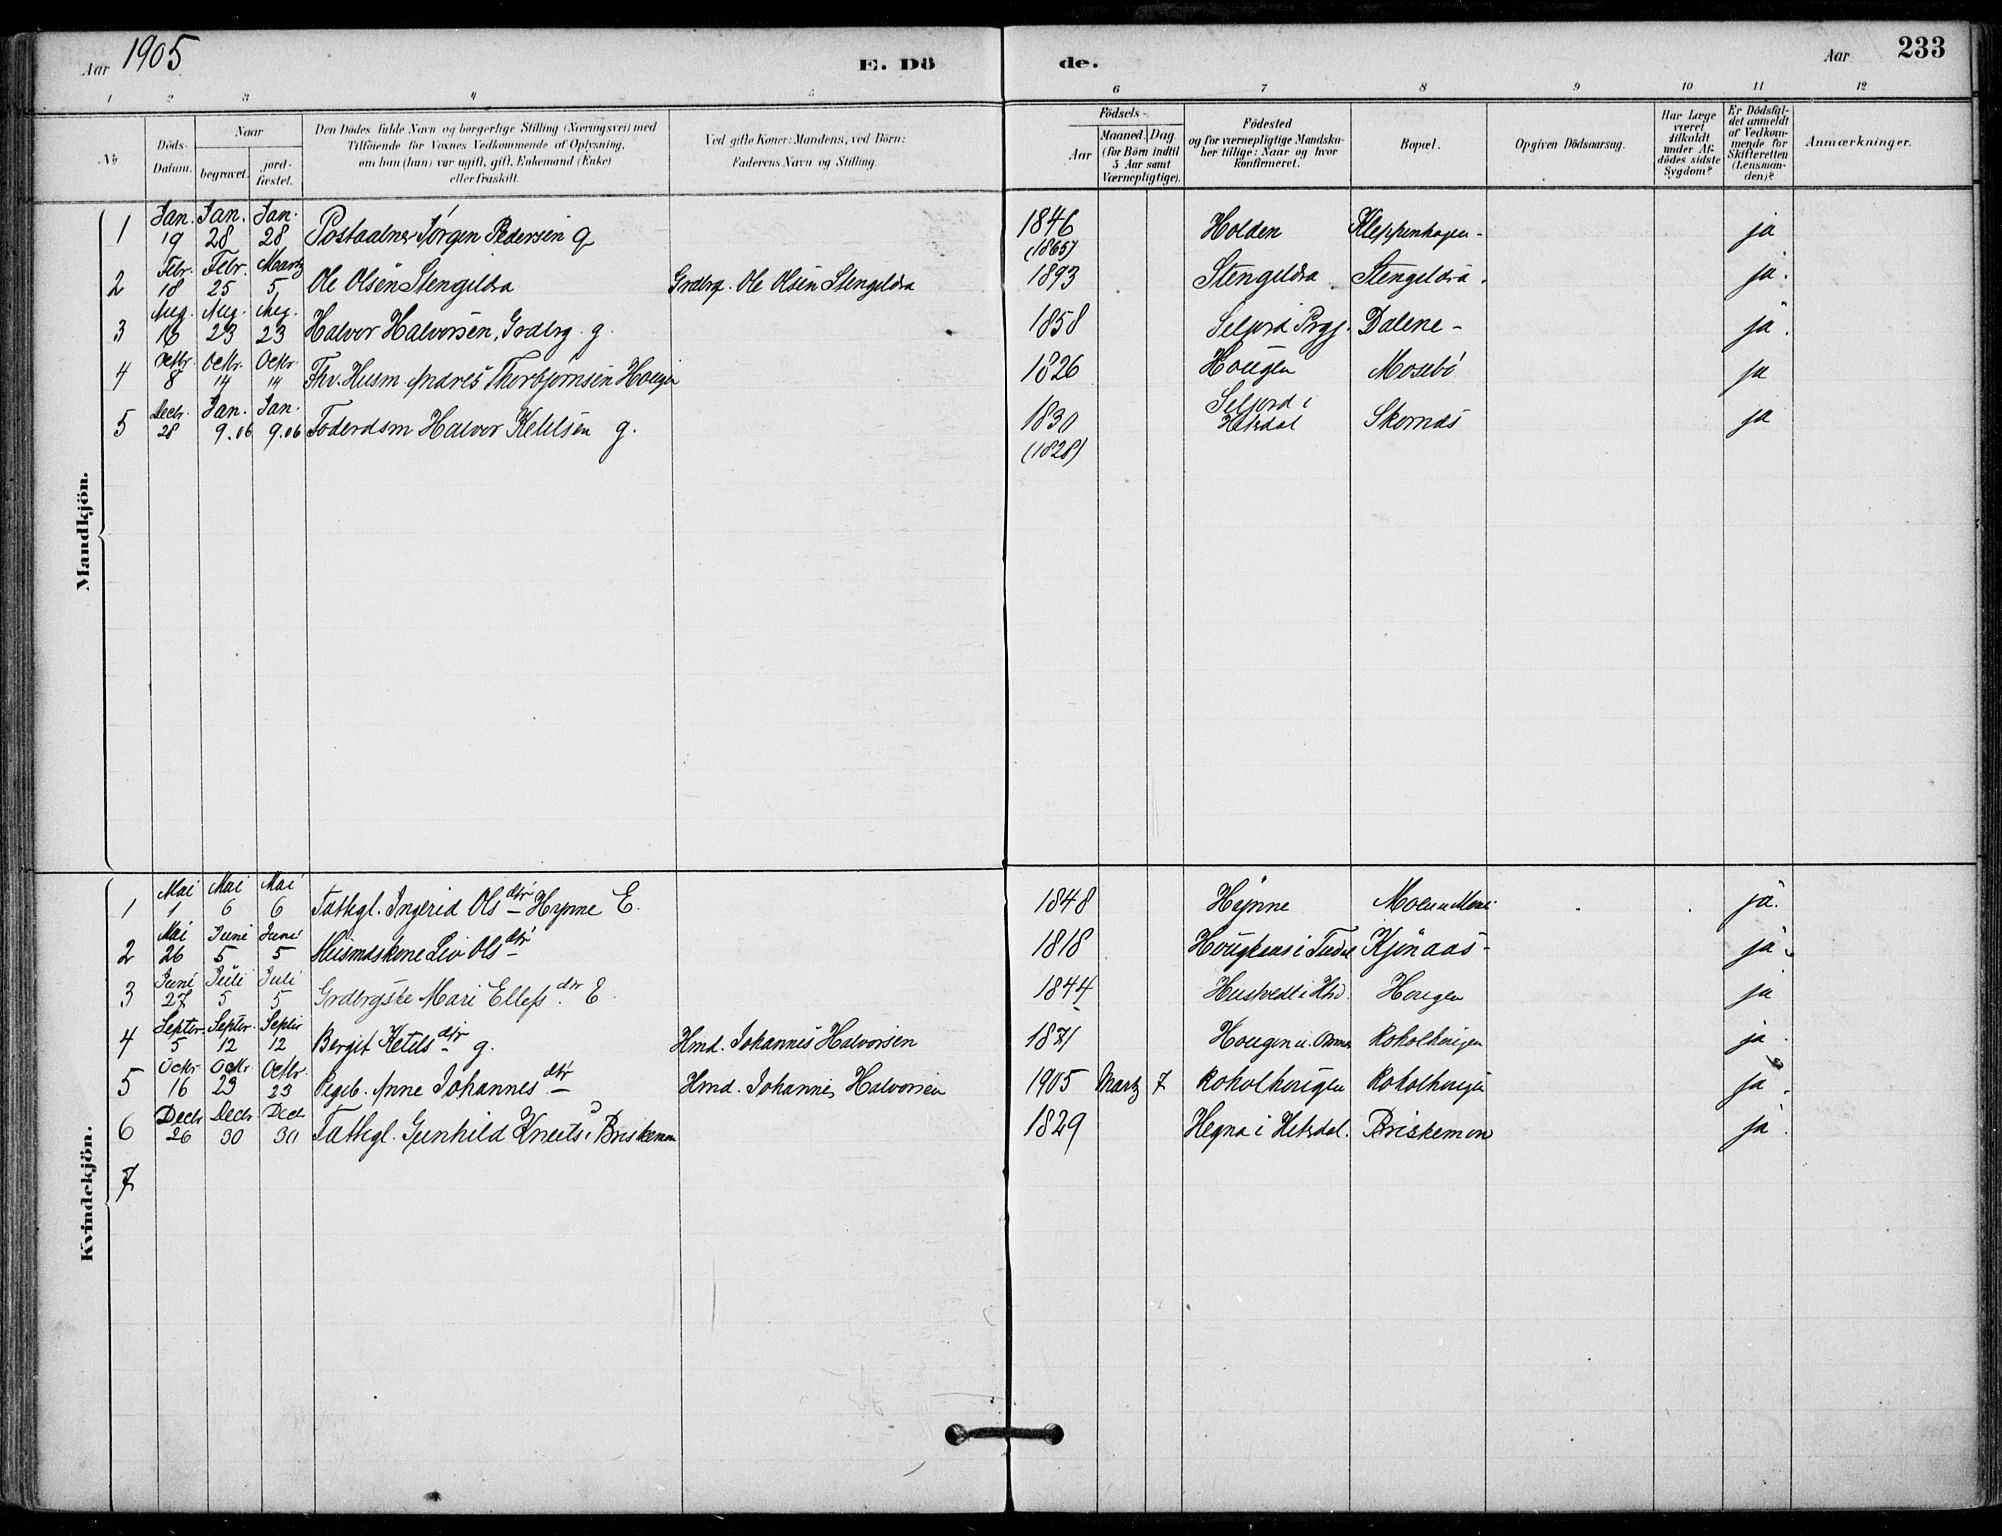 Aar 1905 E. Dö de. Aar 233
1 2 3 4 5 6 7 8 9 10 11 12
No
Döds-Datum.
Naar
begravet.
jord-fæstet.
Den Dödes fulde Navn og borgerlige Stilling (Næringsvei) med
Tilföiende for Voxnes Vedkommende af Oplysning,
om han (hun) var ugift, gift, Enkemand (Enke)
eller fraskilt.
Ved gifte Koner: Mandens, ved Börn:
Faderens Navn og Stilling.
Födsels-
Aar
Maaned. Dag.
(for Börn indtil
5 Aar samt
Værnepligtige).
Födested
og for værnepligtige Mandska-
ber tillige: Naar og hvor
konfirmeret.
Bopæl.
Opgiven Dödsaarsag.
Har Læge
været
tilkaldt
under Af-
dödes sidste
Sygdom?
Er Dödsfal-
det anmeldt
af Vedkom-
mende for
Skifteretten
(Lensman-
den)?
Anmærkninger.
Mandkjön.
1 Jan. 19 Jan. 28 Jan. 28 Jörgen Pedersen g 1846 (1865) Holden Kleppenhagen - ja
2 Febr. 18 Febr. 25 Marts 5 Ole Olsen Stengeldra Grdbrg. Ole Olsen Stengeldra 1893 Stengeldra Stengeldra. ja.
3 Aug. 16 Aug. 23 Aug. 23 Halvor Halvorsen, Grdbrg. g. 1858 Seljord Prgj. Dalene - ja.
4 Octbr. 8 Octbr. 14 Octbr. 14 Fhv. Husm. Andres Thorbjørnsen Hougen 1826 Hougen Mosebö ja
5 Decbr. 28 Jan. 9.06 Jan. 9.06 Föderdsm Halvor Ketilsen g. 1830 (1828) Seljord i Hitrdal Skornes ja
Kvindekjön.
1 Mai 1 Mai 6 Mai 6 Fattiggl. Ingerid Olsdtr Hynne E. 1848 Hynne ja.
2 Mai 26 Juni 5 Juni 5 Husmdskone Liv Olsdtr 1818 i Tudal Kjönaas - ja
3 Juni 27 Juli 5 Juli 5 Mari Ellefsdtr. E 1844 Hustvedt i Hitrd. Hougen ja
4 Septbr. 5 Septbr. 12 Septbr 12 Bergit Ketilsdtr g. Hmd. Johannes Halvorsen 1871 Hougen Kokolhougen ja.
5 Octbr 16 Octbr. 23 Octbr. 23 Pigeb. Anne Johannesdtr Hmd. Johannes Halvorsen 1905 Marts 7 Kokolhougen Kokolhougen ja.
6 Decbr 26 Decbr 30 Decbr 30 Fattiggl. Gunhild Knuts Briskemon 1829 Hegna i Hitrdal. Briskemon ja.
7